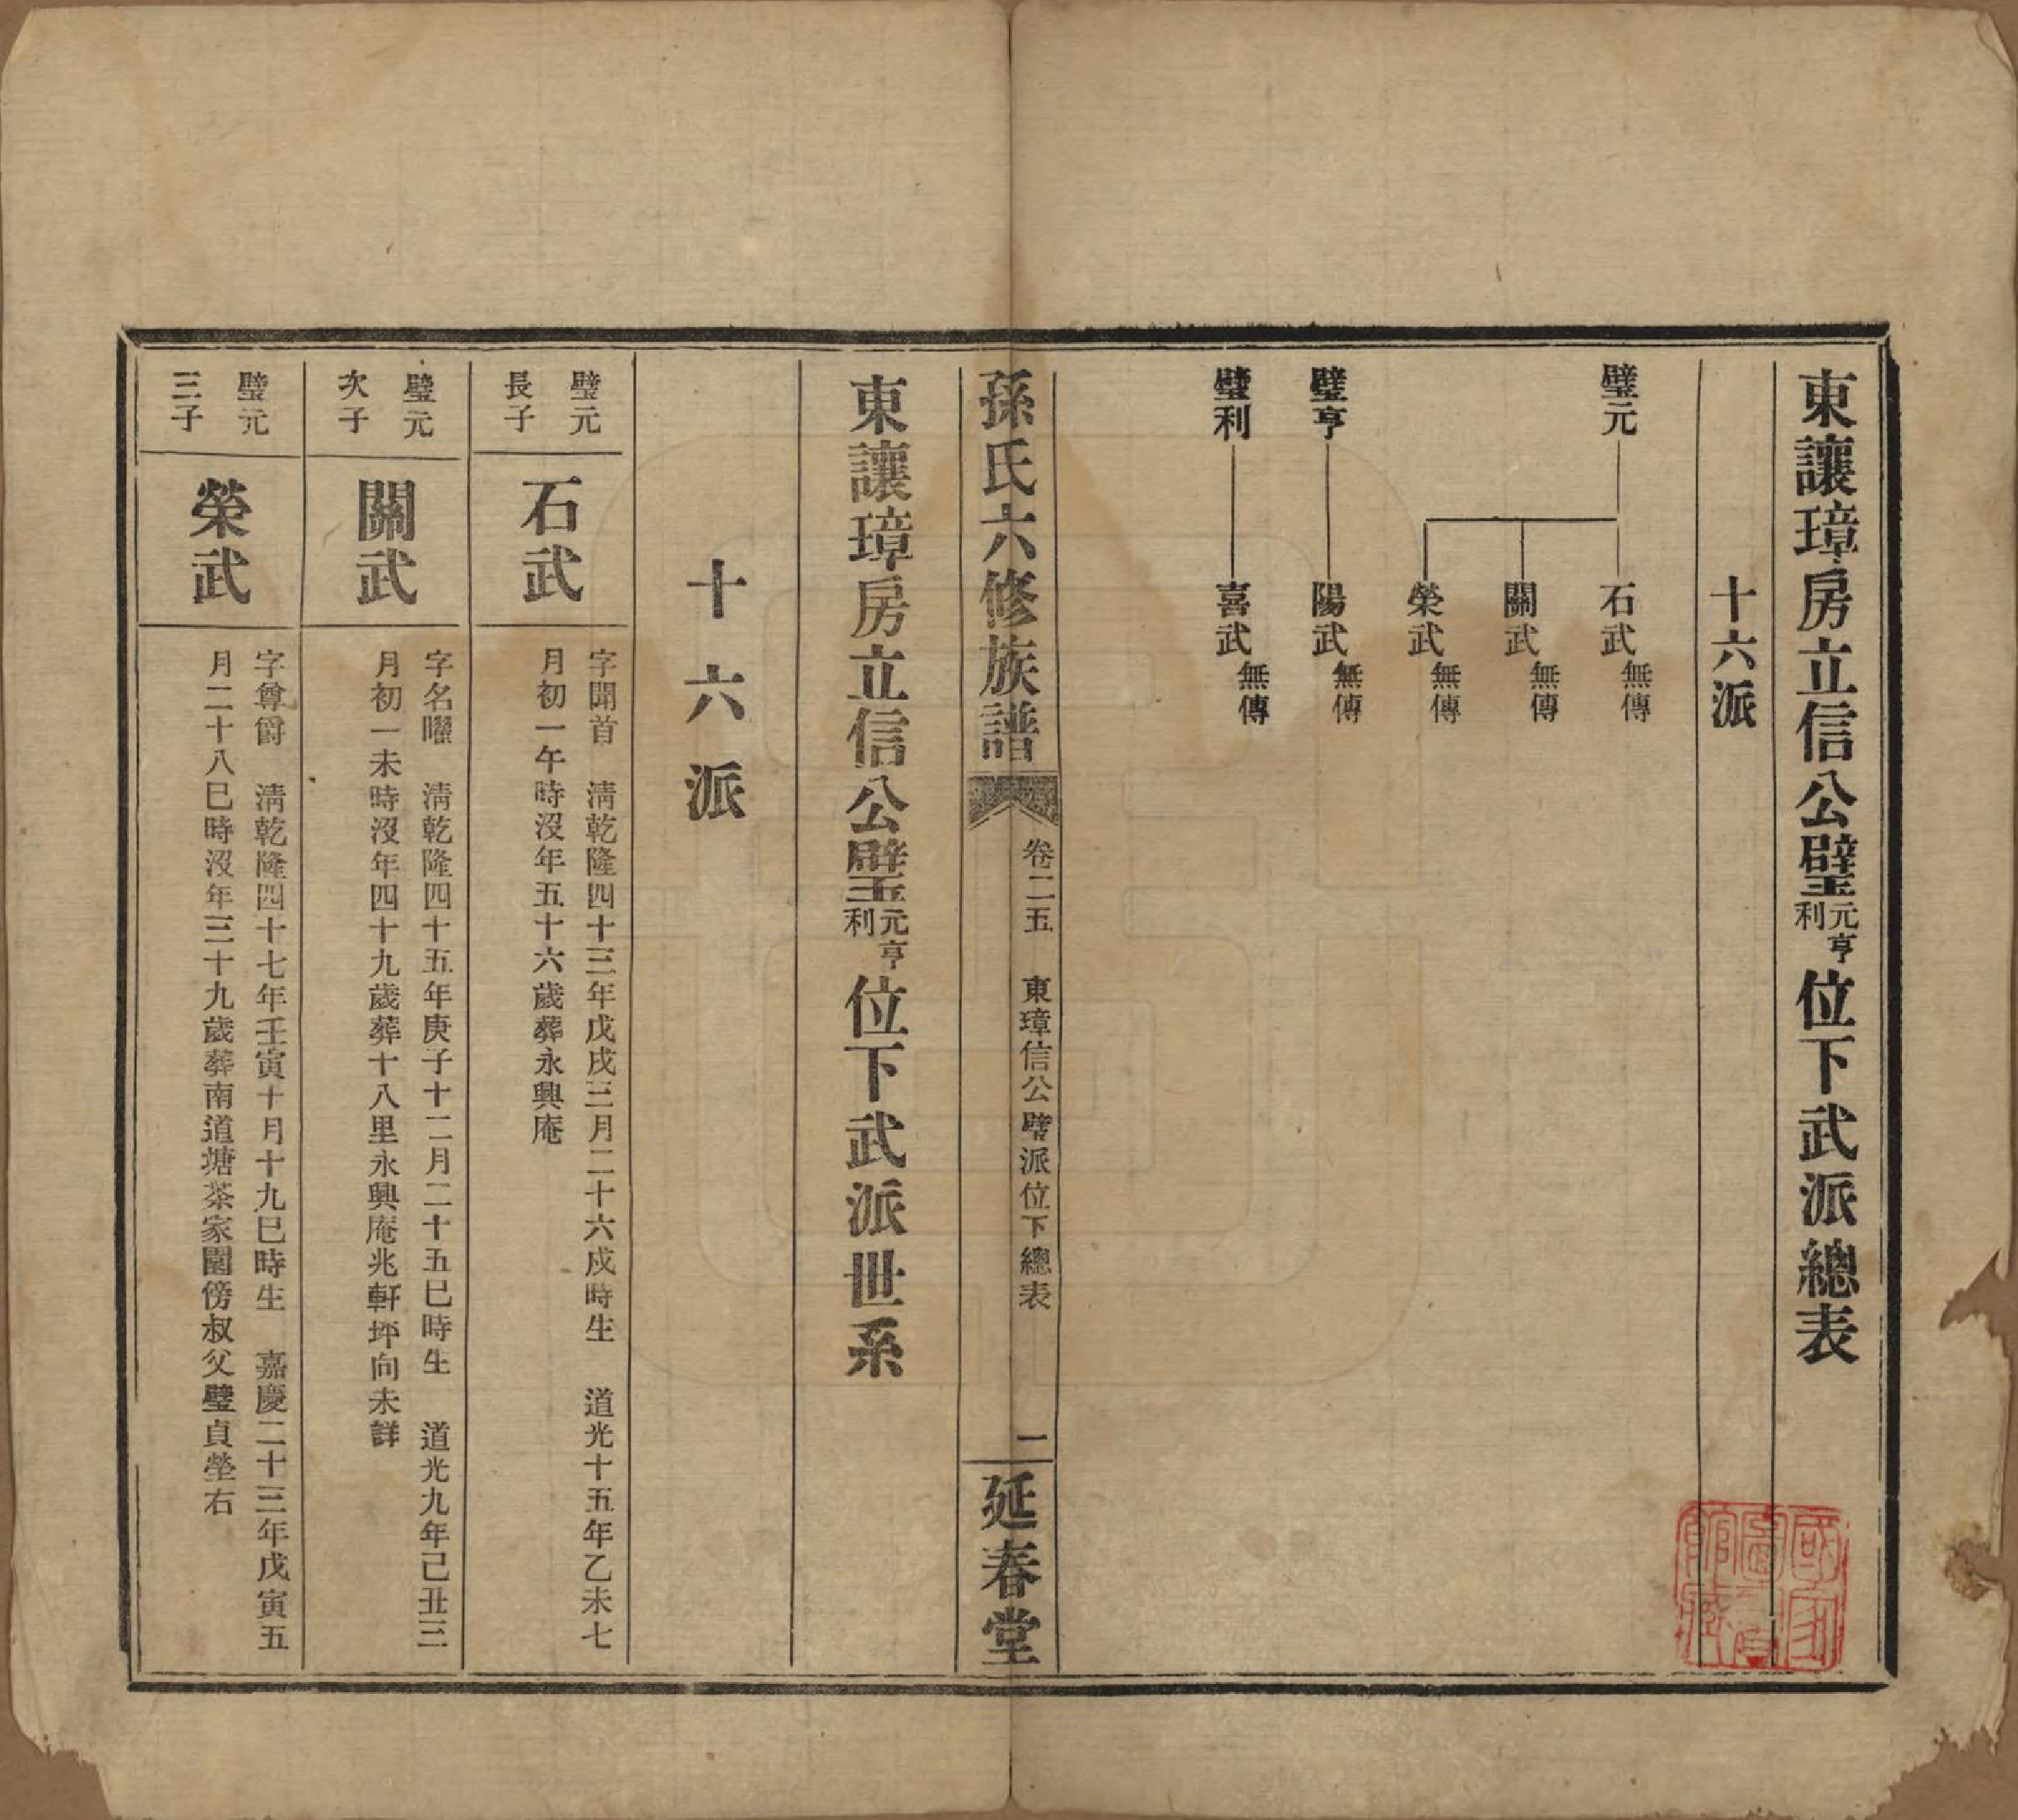 東讓璋房立信公璧元亨利位下武派總表
十六派
璧元
石武 無傳
關武 無傳
榮武 無傳
璧亨
陽武 無傳
璧利
喜武 無傳
孫氏六修族譜
卷二五 東璋信公璧派位下總表
一
延春堂
東讓璋房立信公璧元亨利位下武派世系
十六派
璧元
長子
石武
字聞首 清乾隆四十三年戊戌三月二十六戌時生 道光十五年乙未七
月初一午時沒年五十六歲葬永興庵
璧元
次子
關武
字名曜 清乾隆四十五年庚子十二月二十五巳時生 道光九年己丑三
月初一未時沒年四十九歲葬十八里永興庵兆軒坪向未詳
璧元
三子
榮武
字尊爵 清乾隆四十七年壬寅十月十九巳時生 嘉慶二十三年戊寅五
月二十八巳時沒年三十九歲葬南道塘茶家園傍叔父璧貞塋右
國家圖書館藏